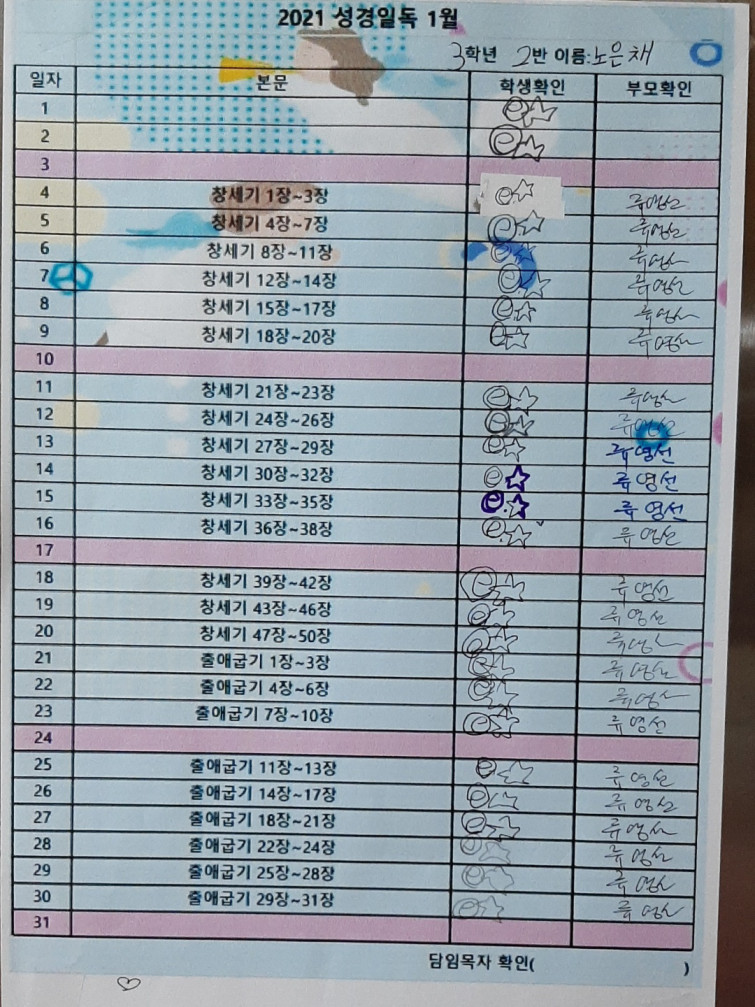 2021 성경일독 1월
3학년 2반 이름:노은채
일자 본문 학생확인 부모확인
1
2
3
4 창세기 1장~3장 류영선
5 창세기 4장~7장 류영선
6 창세기 8장~11장 류영선
7 창세기 12장~14장 류영선
8 창세기 15장~17장 류영선
9 창세기 18장~20장 류영선
10
11 창세기 21장~23장 류영선
12 창세기 24장~26장 류영선
13 창세기 27장~29장 류영선
14 창세기 30장~32장 류영선
15 창세기 33장~35장 류영선
16 창세기 36장~38장 류영선
17
18 창세기 39장~42장 류영선
19 창세기 43장~46장 류영선
20 창세기 47장~50장 류영선
21 출애굽기 1장~3장 류영선
22 출애굽기 4장~6장 류영선
23 출애굽기 7장~10장 류영선
24
25 출애굽기 11장~13장 류영선
26 출애굽기 14장~17장 류영선
27 출애굽기 18장~21장 류영선
28 출애굽기 22장~24장 류영선
29 출애굽기 25장~28장 류영선
30 출애굽기 29장~31장 류영선
31
담임목자 확인( )